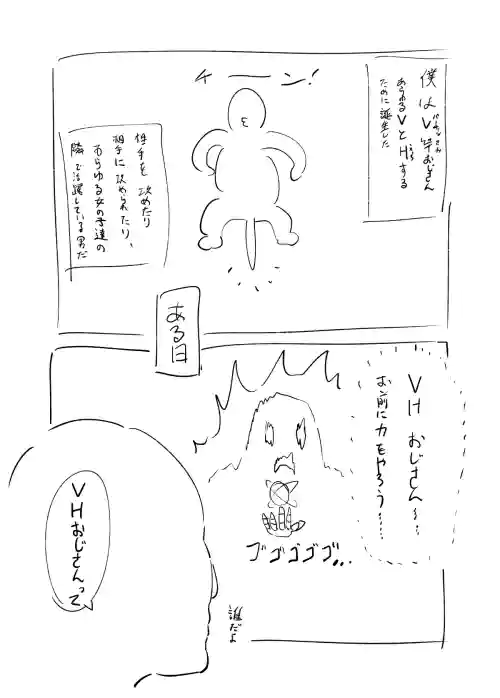 僕はV竿おじさん
あらゆるVとHする
ために誕生した
チーン!
相手を攻めたり
相手に攻められたり、
あらゆる女の子達の
隣で活躍している男だ
ある日
VHおじさん〜…
お前に力をやろう……
ゴゴゴゴゴ…
VHおじさんって
誰だよ